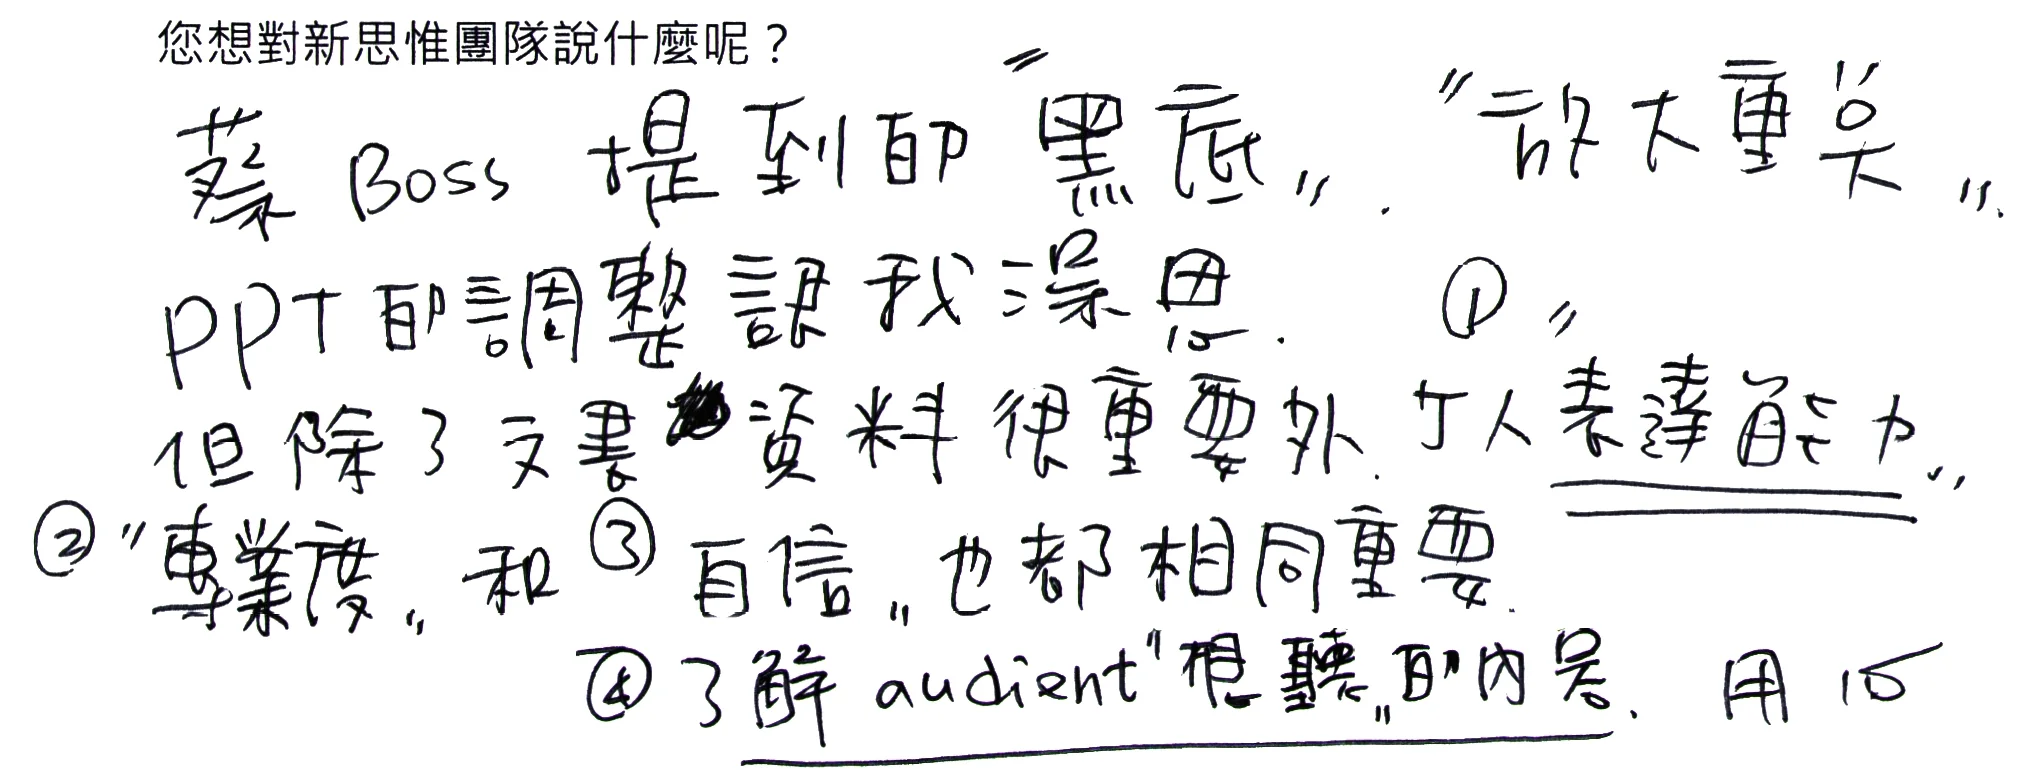 您想對新思惟團隊說什麼呢？
蔡 Boss 提到的 "黑底". "放大重點".
PPT 的調整讓我深思. ① "
但除了文書資料很重要外. 個人表達能力"
② "專業度" 和 ③ 自信" 也都相同重要.
④ 了解 audient "想聽" 的內容. 用心